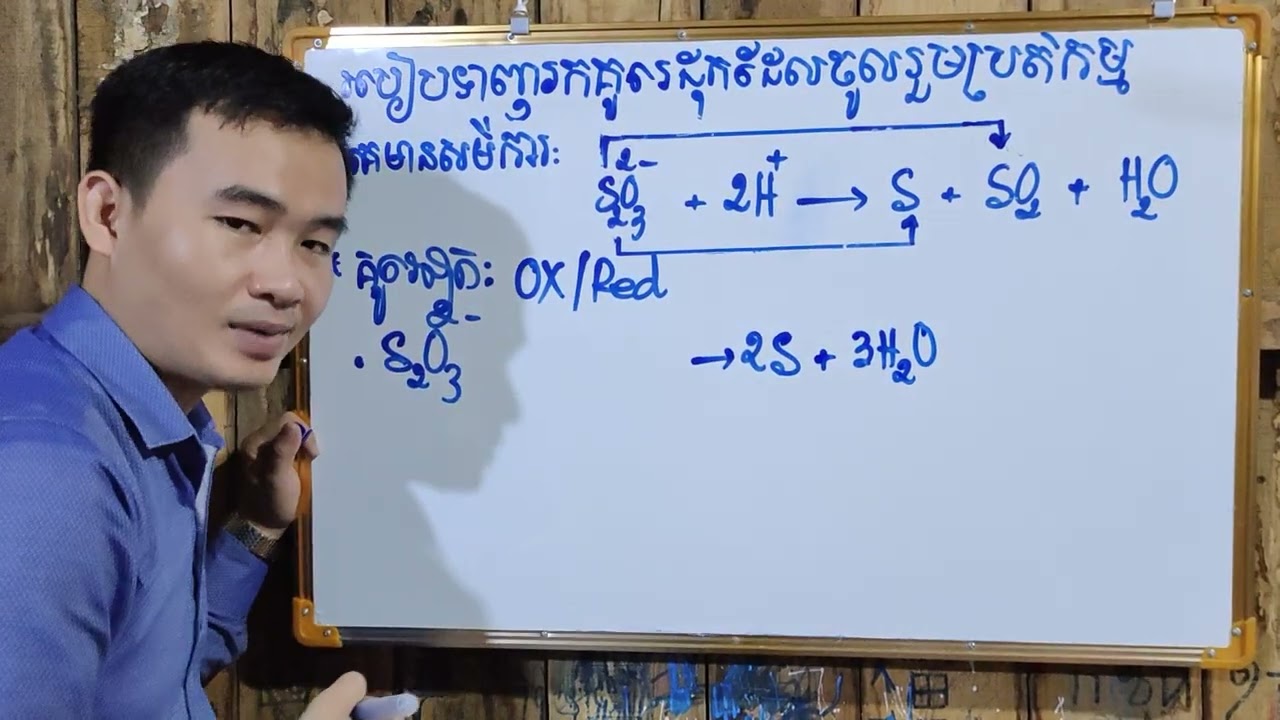 របៀបទាញរកគូរេដុកដែលចូលរួមប្រតិកម្ម
គេមានសមីការៈ S₂O₃²⁻ + 2H⁺ → S + SO₂ + H₂O
OX/Red
· S₂O₃²⁻ → 2S + 3H₂O